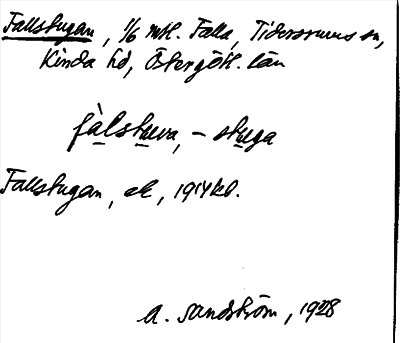 Fallstugan, 1/6 mtl. Falla, Tidersrums sn,
Kinda hd, Östergötl. län
fàlstuva, – stuga
Fallstugan, ek, 1914 kl.
A. Sandström, 1928